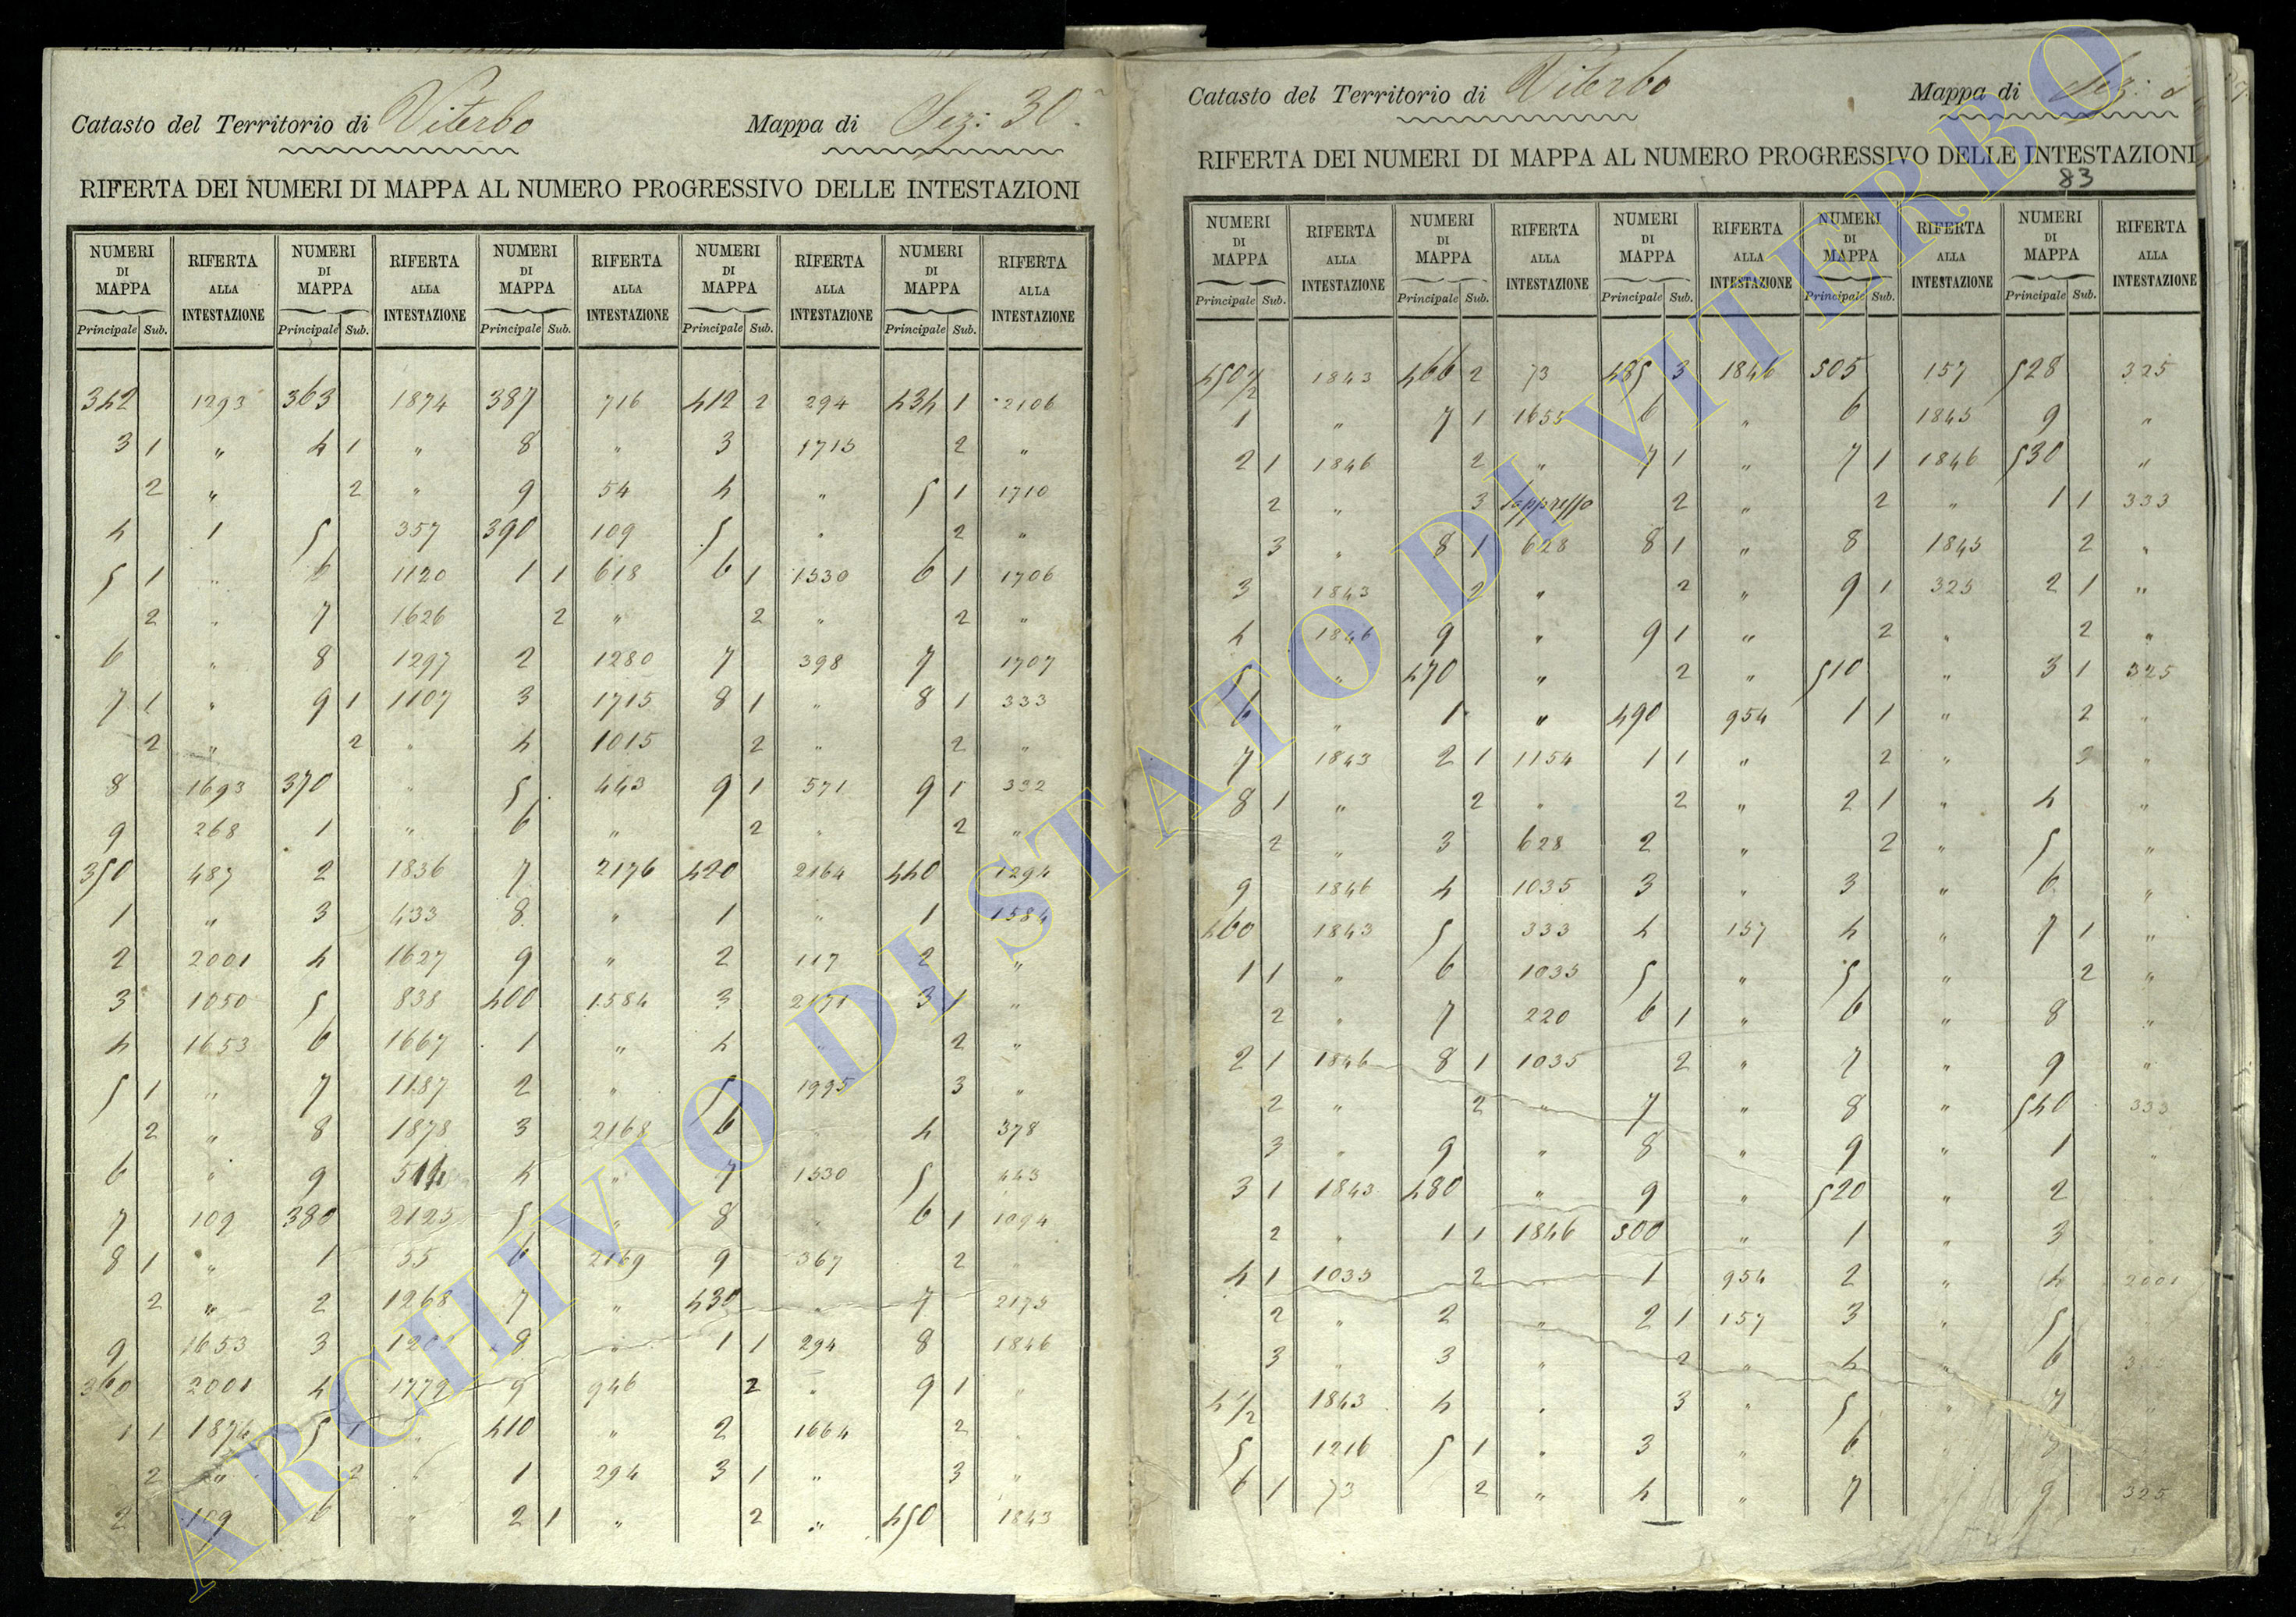 Catasto del Territorio di Viterbo Mappa di Sez: 30
RIFERTA DEI NUMERI DI MAPPA AL NUMERO PROGRESSIVO DELLE INTESTAZIONI
NUMERI DI MAPPA RIFERTA ALLA INTESTAZIONE NUMERI DI MAPPA RIFERTA ALLA INTESTAZIONE NUMERI DI MAPPA RIFERTA ALLA INTESTAZIONE NUMERI DI MAPPA RIFERTA ALLA INTESTAZIONE NUMERI DI MAPPA RIFERTA ALLA INTESTAZIONE
Principale Sub. Principale Sub. Principale Sub. Principale Sub. Principale Sub.
342 1293 363 1874 387 716 412 2 294 434 1 2106
3 1 " 4 1 " 8 " 3 1715 2 "
2 " 2 " 9 54 4 " 5 1 1710
4 1 5 357 390 109 5 " 2 "
5 1 " 6 1120 1 1 618 6 1 1530 6 1 1706
2 " 7 1626 2 " 2 " 2 "
6 " 8 1297 2 1280 7 398 7 1707
7 1 " 9 1 1107 3 1715 8 1 " 8 1 333
2 " 2 " 4 1015 2 " 2 "
8 1693 370 " 5 443 9 1 571 9 1 332
9 268 1 " 6 " 2 " 2 "
350 487 2 1836 7 2176 420 2164 440 1294
1 " 3 433 8 " 1 " 1 1584
2 2001 4 1627 9 " 2 117 2 "
3 1050 5 838 400 1584 3 2171 3 1 "
4 1653 6 1667 1 " 4 " 2 "
5 1 " 7 1187 2 " 5 1995 3 "
2 " 8 1878 3 2168 6 " 4 378
6 " 9 4 " 7 1530 5 443
7 109 380 2125 5 " 8 " 6 1 1094
8 1 " 1 55 6 2169 9 367 2 "
2 " 2 1268 7 " 430 " 7 2175
9 1653 3 8 " 1 1 294 8 1846
360 2001 4 1779 9 946 2 " 9 1 "
1 1 1874 5 1 " 410 " 2 1664 2 "
2 " 2 " 1 294 3 1 " 3 "
2 109 6 " 2 1 " 2 " 450 1843
Catasto del Territorio di Viterbo Mappa di Sez:
RIFERTA DEI NUMERI DI MAPPA AL NUMERO PROGRESSIVO DELLE INTESTAZIONI
83
NUMERI DI MAPPA RIFERTA ALLA INTESTAZIONE NUMERI DI MAPPA RIFERTA ALLA INTESTAZIONE NUMERI DI MAPPA RIFERTA ALLA INTESTAZIONE NUMERI DI MAPPA RIFERTA ALLA INTESTAZIONE NUMERI DI MAPPA RIFERTA ALLA INTESTAZIONE
Principale Sub. Principale Sub. Principale Sub. Principale Sub. Principale Sub.
450 1/2 1843 466 2 73 485 3 1846 505 157 528 325
1 " 7 1 1655 6 " 6 1845 9 "
2 1 1846 2 " 7 1 " 7 1 1846 530 "
2 " 3 soppresso 2 " 2 " 1 1 333
3 " 8 1 628 8 1 " 8 1845 2 "
3 1843 2 " 2 " 9 1 325 2 1 "
4 1846 9 " 9 1 " 2 " 2 "
5 " 470 " 2 " 510 " 3 1 325
6 " 1 " 490 954 1 1 " 2 "
7 1843 2 1 1154 1 1 " 2 " 3 "
8 1 " 2 " 2 " 2 1 " 4 "
2 " 3 628 2 " 2 " 5 "
9 1846 4 1035 3 " 3 " 6 "
460 1843 5 333 4 157 4 " 7 1 "
1 1 " 6 1035 5 " 5 " 2 "
2 " 7 220 6 1 " 6 " 8 "
2 1 1846 8 1 1035 2 " 7 " 9 "
2 " 2 " 7 " 8 " 540 333
3 " 9 " 8 " 9 " 1 "
3 1 1843 480 " 9 " 520 " 2
2 " 1 1 1846 500 " 1 " 3
4 1 1035 2 " 1 954 2 " 4 2001
2 " 2 " 2 1 157 3 " 5
3 " 3 " 2 " 4 " 6
4 1/2 1843 4 " 3 " 5 7
5 1216 5 1 " 3 " 6
6 1 73 2 " 4 " 7 9 325
ARCHIVIO DI STATO DI VITERBO